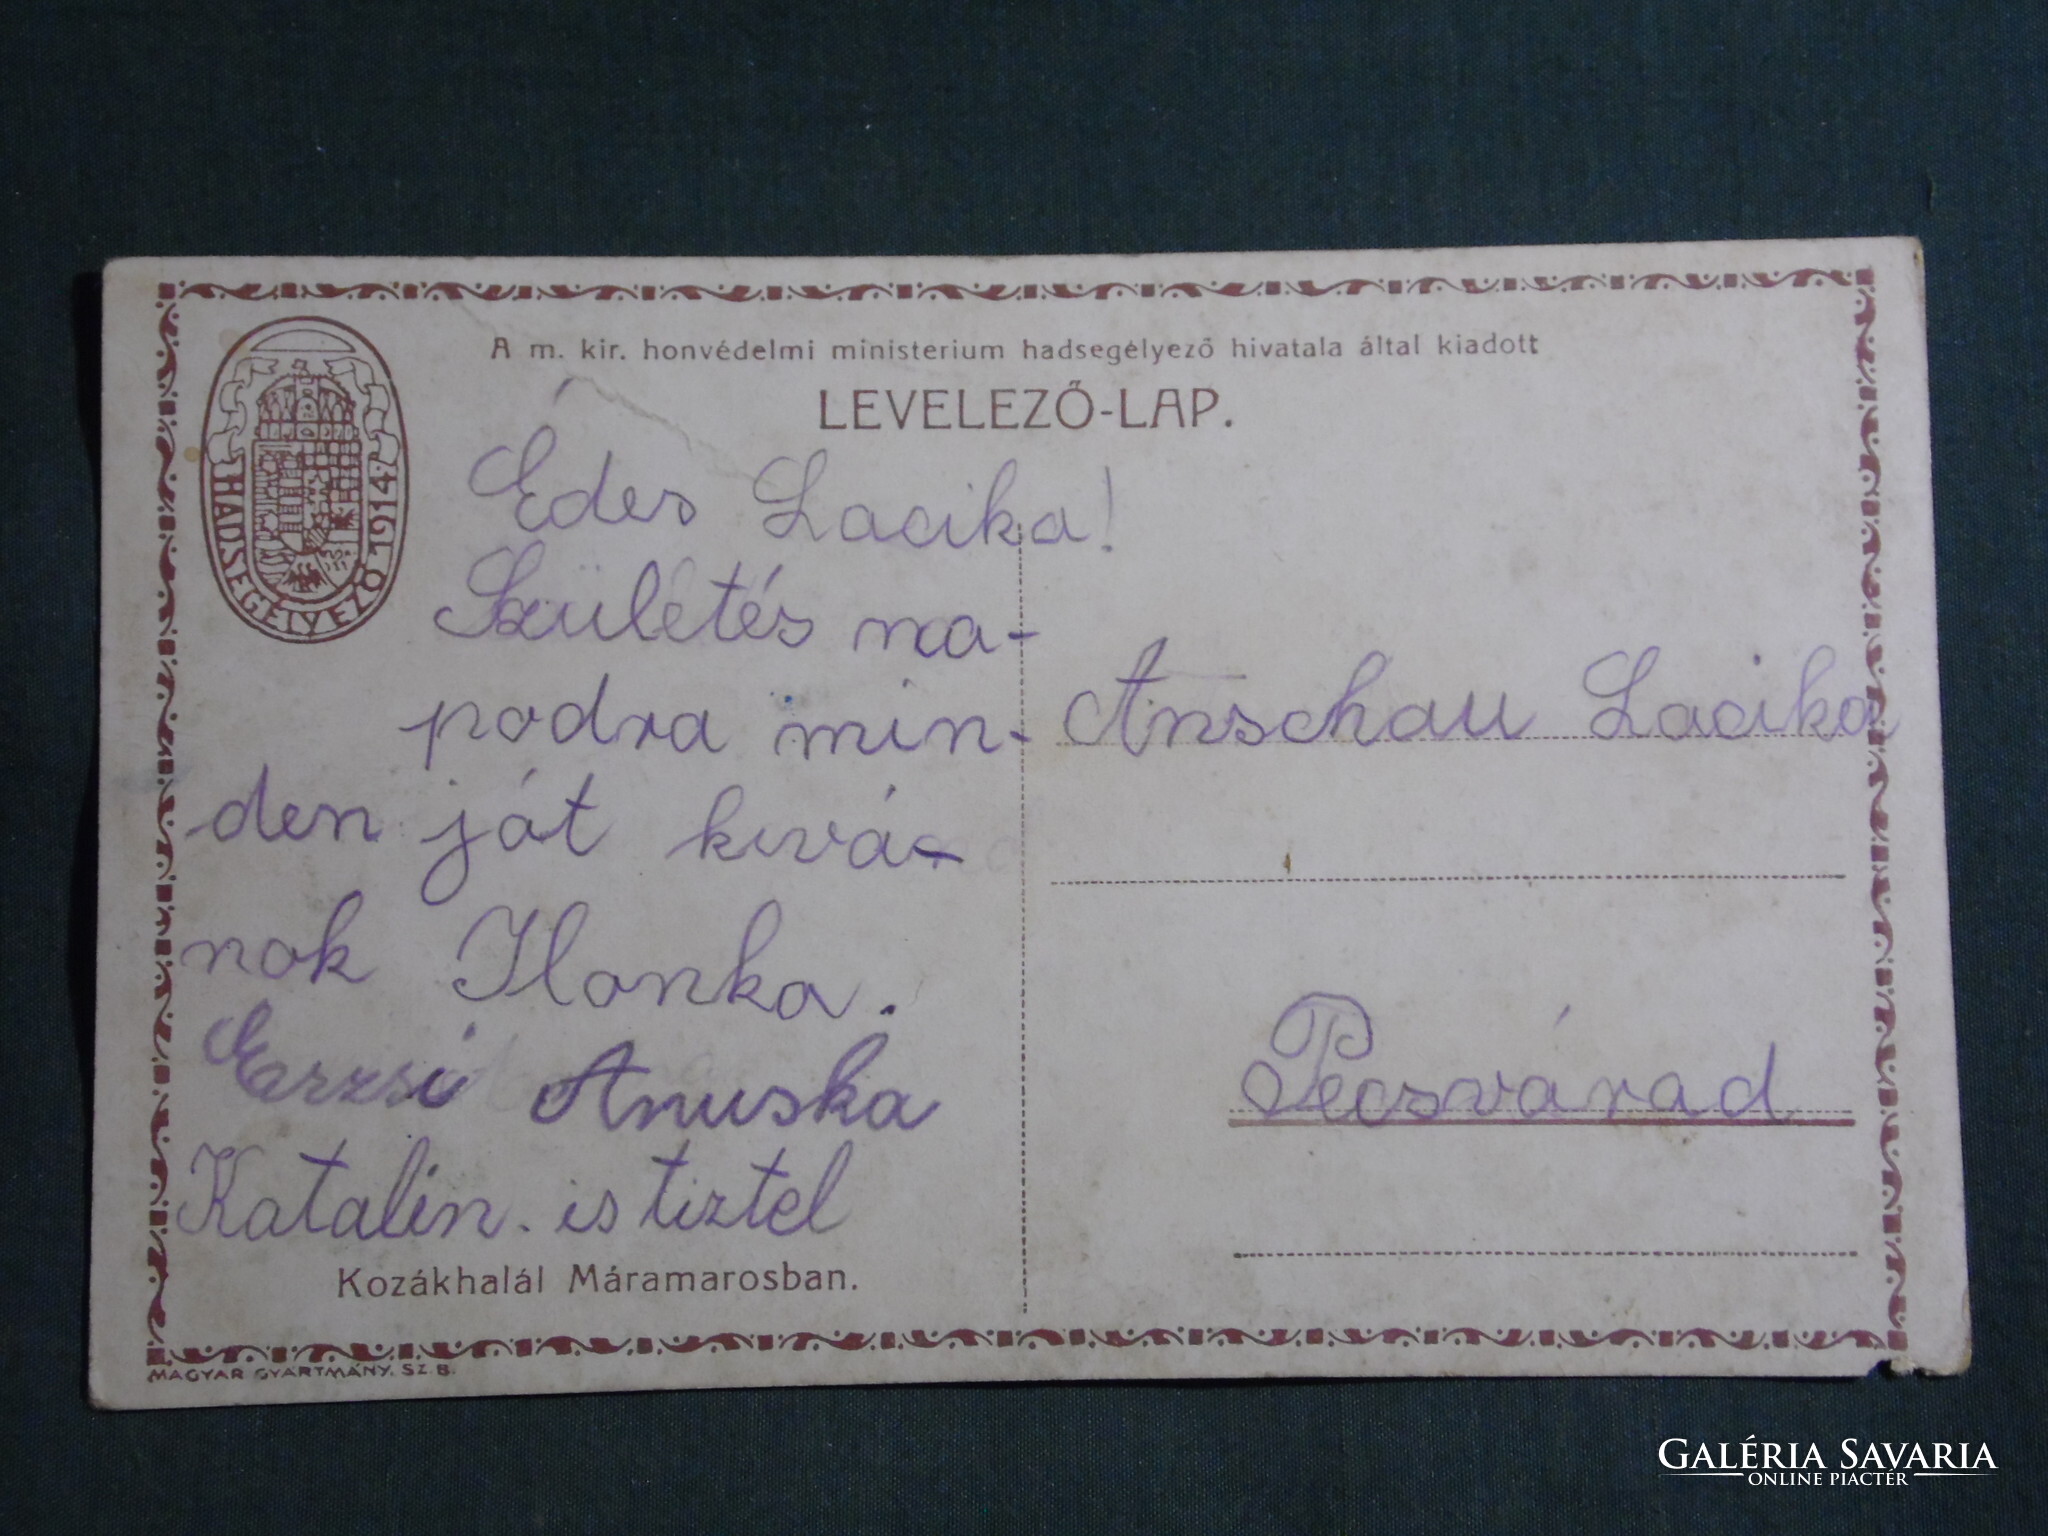 A m. kir. honvédelmi ministerium hadsegélyező hivatala által kiadott
LEVELEZŐ-LAP.
HADSEGÉLYEZŐ 1914.
Édes Lacika!
Születés na-
podra min-
den ját kivá-
nok Ilonka.
Erzsi Anuska
Katalin. is tiztel
Kozákhalál Máramarosban.
MAGYAR GYÁRTMÁNY. SZ. B.
Anschau Lacika
Pecsvárad
GALÉRIA SAVARIA
ONLINE PIACTÉR